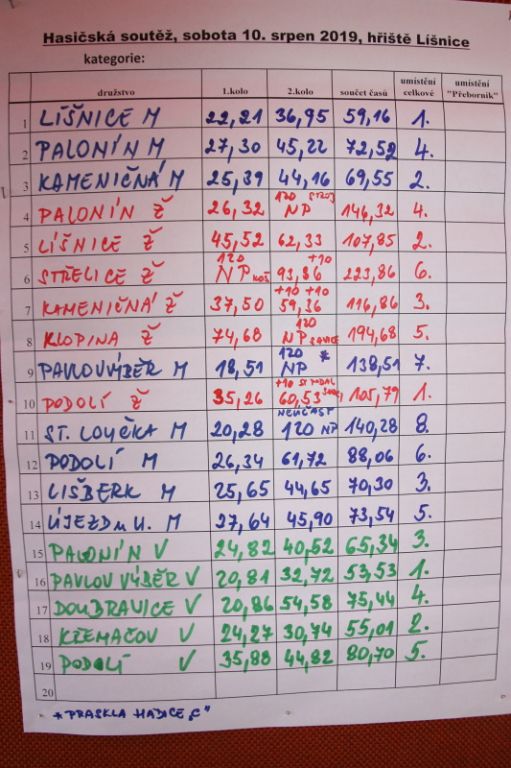 Hasičská soutěž, sobota 10. srpen 2019, hřiště Líšnice
kategorie:
družstvo 1.kolo 2.kolo součet časů umístění celkové umístění "Přeborník"
1 LÍŠNICE M 22,21 36,95 59,16 1.
2 PALONÍN M 27,30 45,22 72,52 4.
3 KAMENIČNÁ M 25,39 44,16 69,55 2.
4 PALONÍN Ž 26,32 120 STROJ NP 146,32 4.
5 LÍŠNICE Ž 45,52 62,33 107,85 2.
6 STŘELICE Ž 120 NP KOŠ +10 93,86 223,86 6.
7 KAMENIČNÁ Ž 37,50 +10 +10 59,36 116,86 3.
8 KLOPINA Ž 74,68 120 NP 194,68 5.
9 PAVLOV VÝBĚR M 18,51 120 * NP 138,51 7.
10 PODOLÍ Ž 35,26 +10 60,53 105,79 1.
11 ST. LOUČKA M 20,28 NEÚČAST 120 NP 140,28 8.
12 PODOLÍ M 26,34 61,72 88,06 6.
13 LIŠBERK M 25,65 44,65 70,30 3.
14 ÚJEZD u U. M 27,64 45,90 73,54 5.
15 PALONÍN V 24,82 40,52 65,34 3.
16 PAVLOV VÝBĚR V 20,81 32,72 53,53 1.
17 DOUBRAVICE V 20,86 54,58 75,44 4.
18 KŘEMAČOV V 24,27 30,74 55,01 2.
19 PODOLÍ V 35,88 44,82 80,70 5.
20
* PRASKLA HADICE „C"